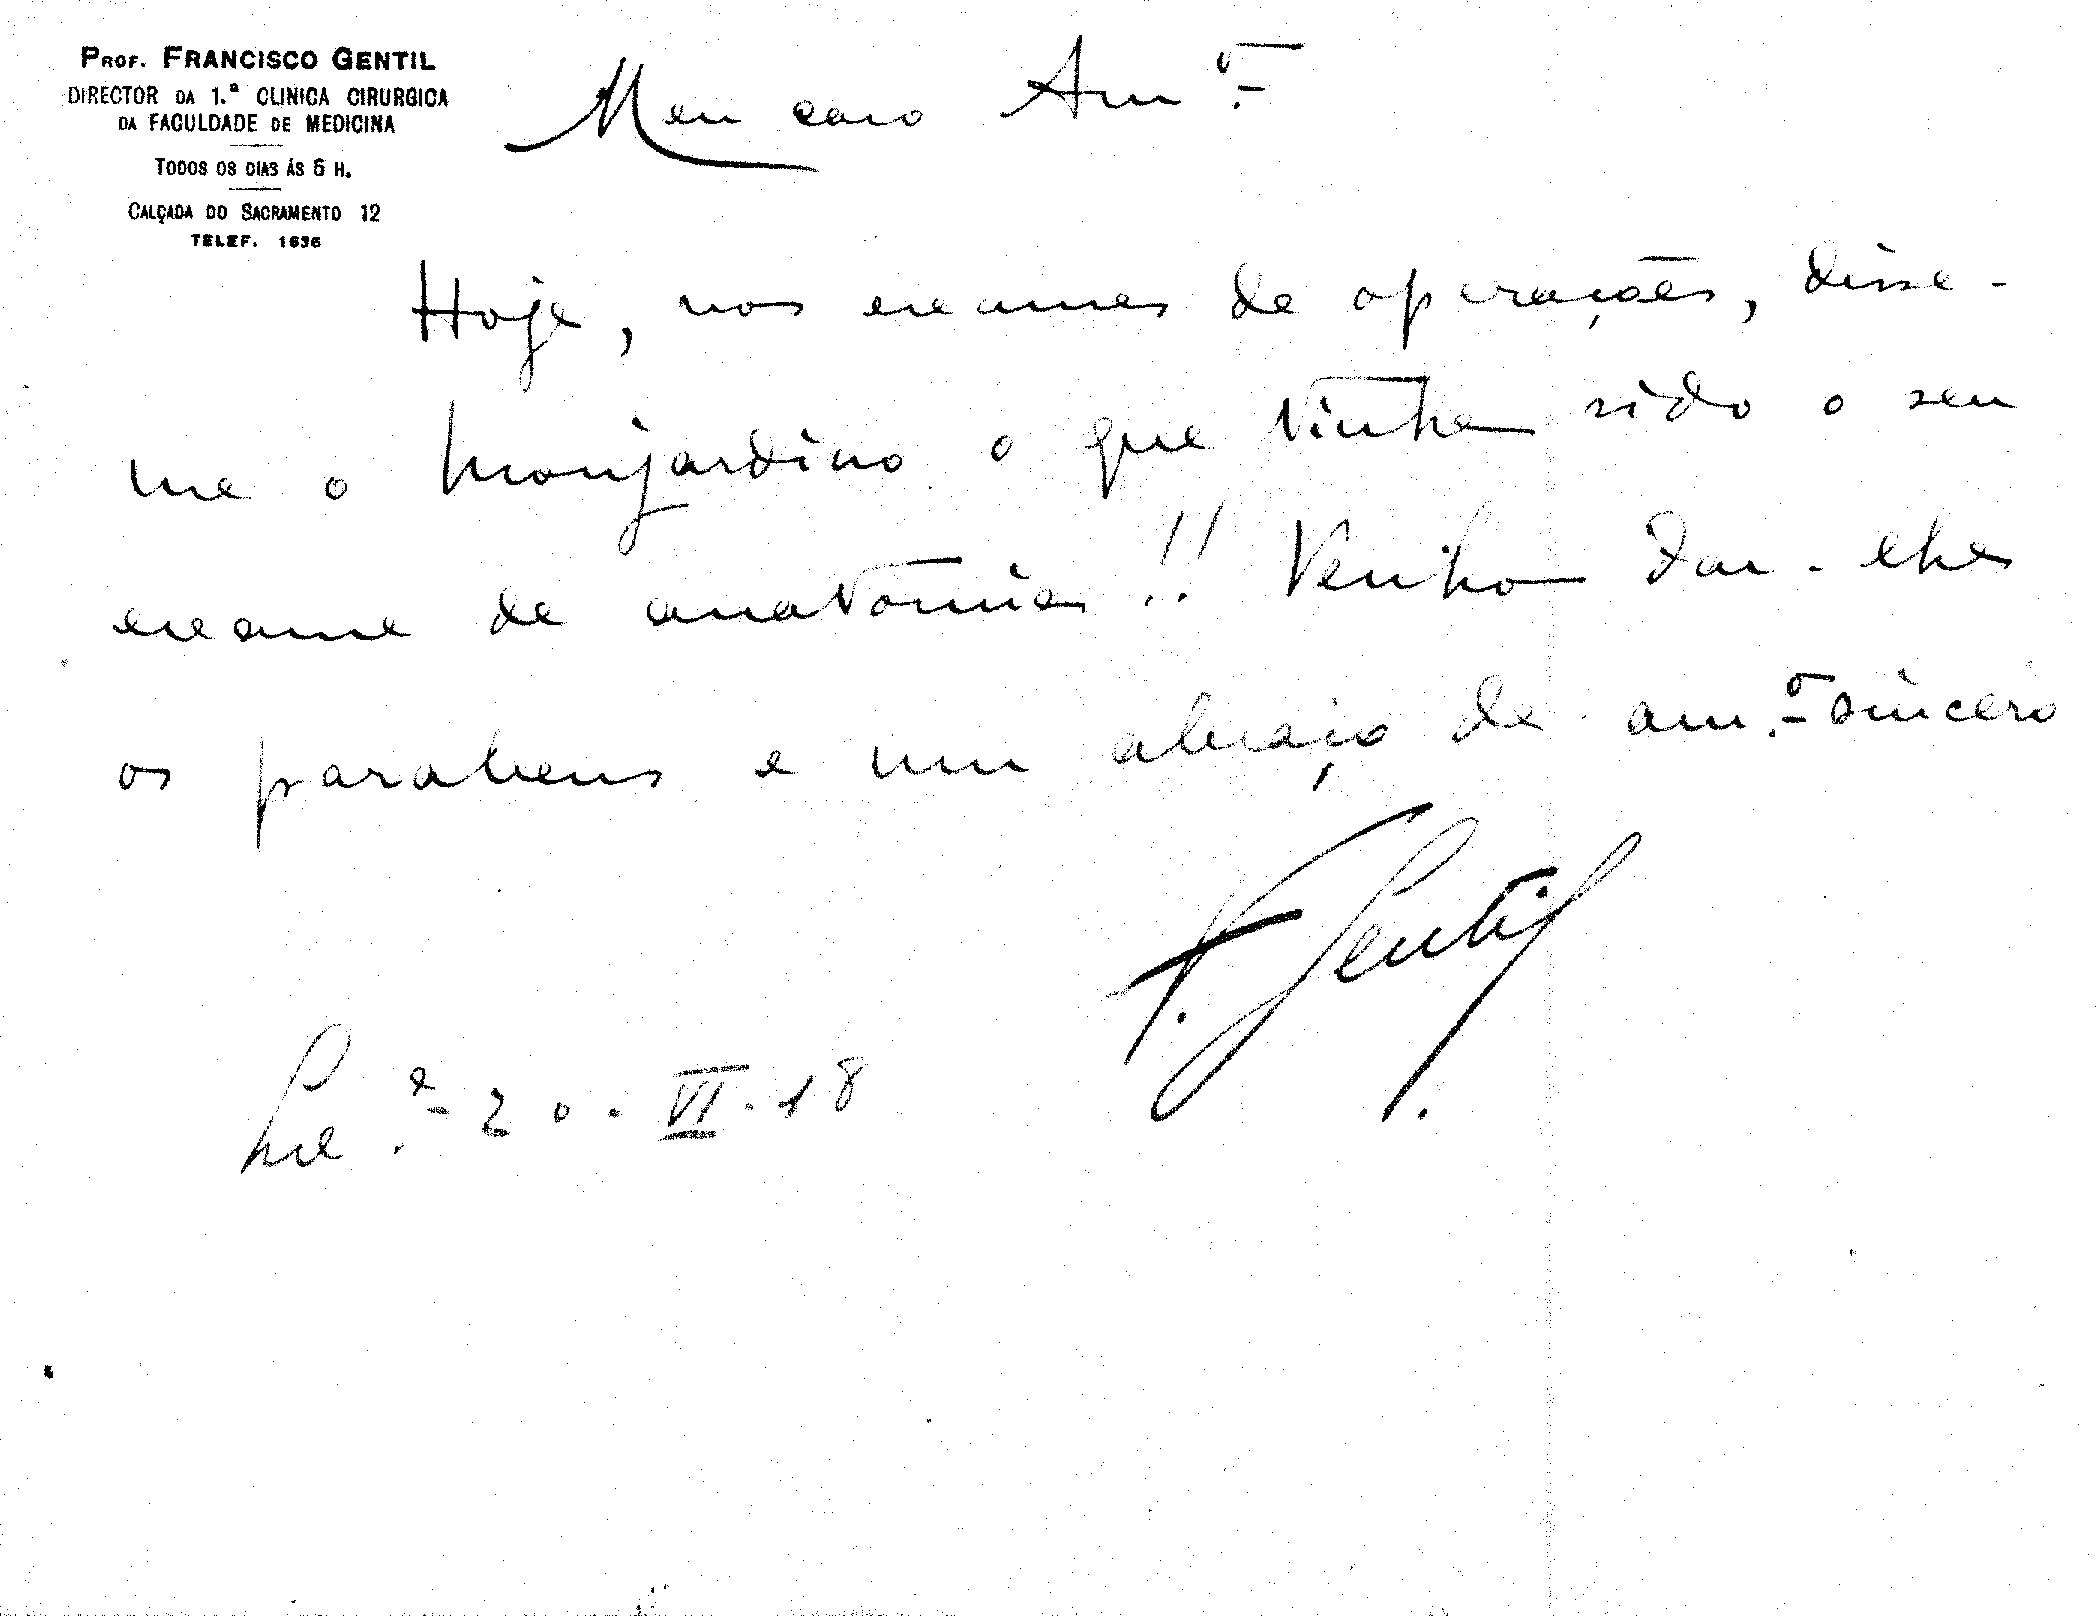 PROF. FRANCISCO GENTIL
DIRECTOR DA 1.ª CLINICA CIRURGICA
DA FACULDADE DE MEDICINA
TODOS OS DIAS ÁS 5 H.
CALÇADA DO SACRAMENTO 12
TELEF. 1636
Meu caro Am.º
Hoje, nos exames de operações, disse-
me o Monjardino o que tinha sido o seu
exame de anatomia!! Venho dar-lhe
os parabens e um abraço de am.º sincero
F. Gentil.
20.VI.18